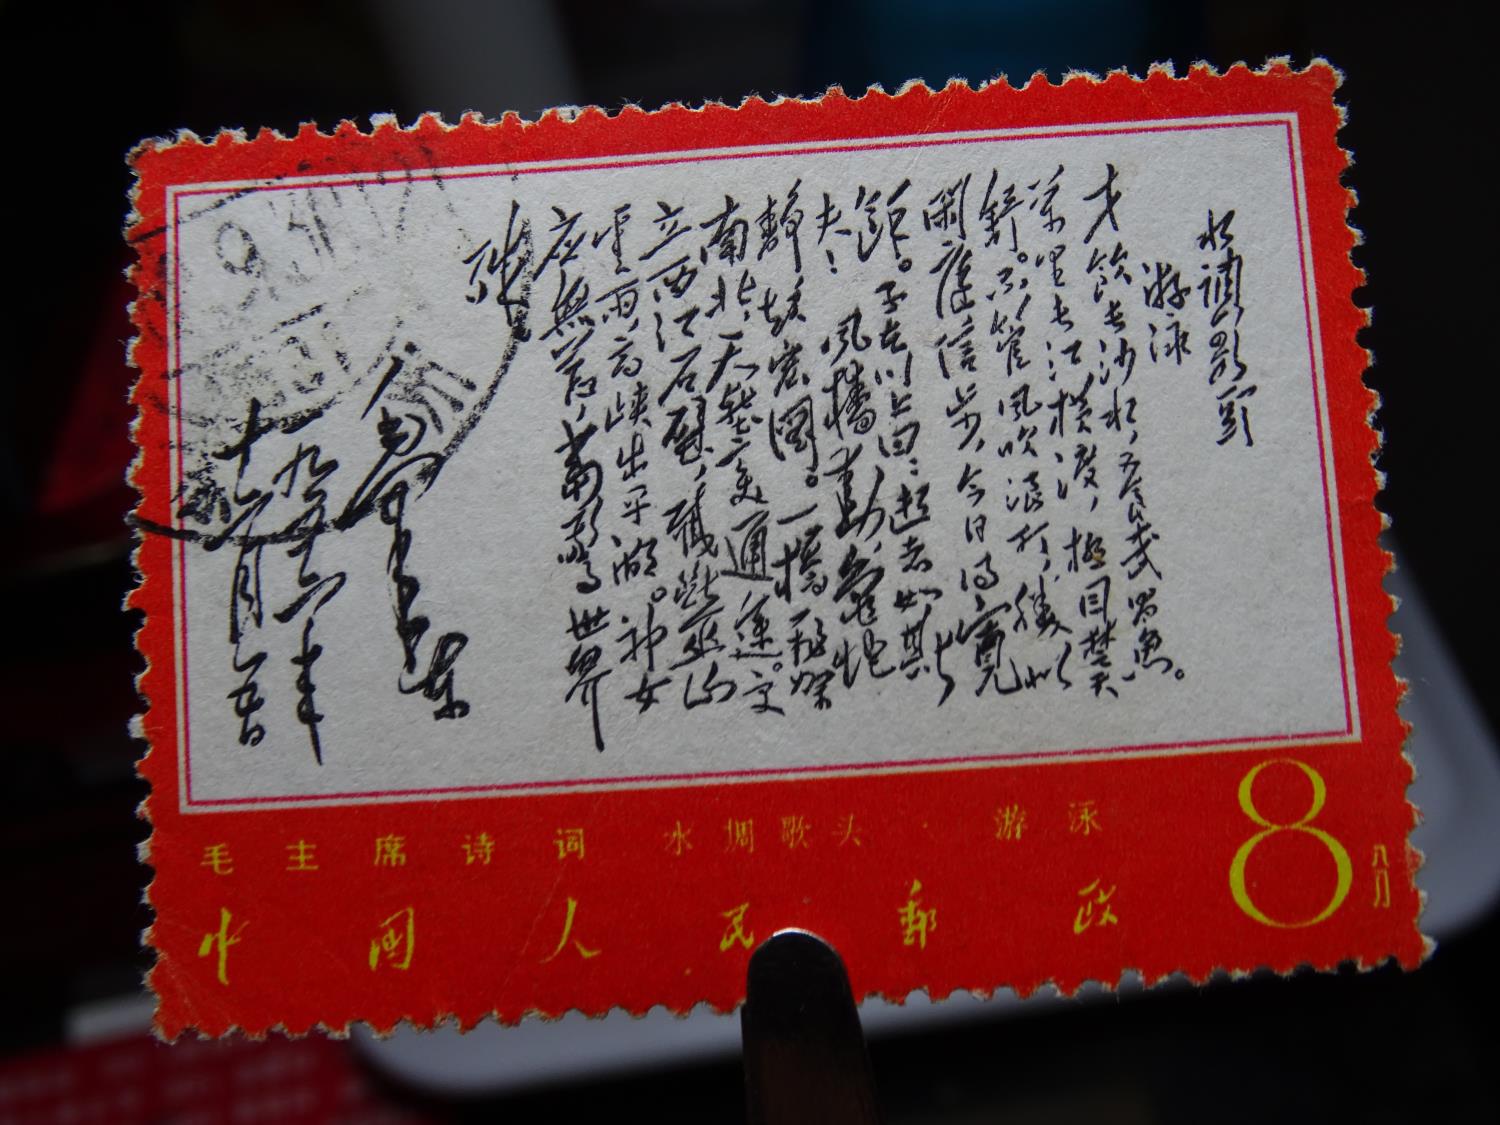 水調歌頭
游泳
才飲长沙水,又食武昌魚。
萬里长江横渡,极目楚天
舒。不管风吹浪打,勝似
閑庭信步,今日得寬
餘。子在川上曰:逝者如斯
夫! 风檣動,龜蛇
静,起宏图。一橋飛架
南北,天塹变通途。更
立西江石壁,截断巫山
雲雨,高峡出平湖。神女
应無恙,當驚世界
殊
毛泽东
一九五六年
十二月五日
毛主席诗词 水调歌头·游泳
中国人民邮政
8
八分